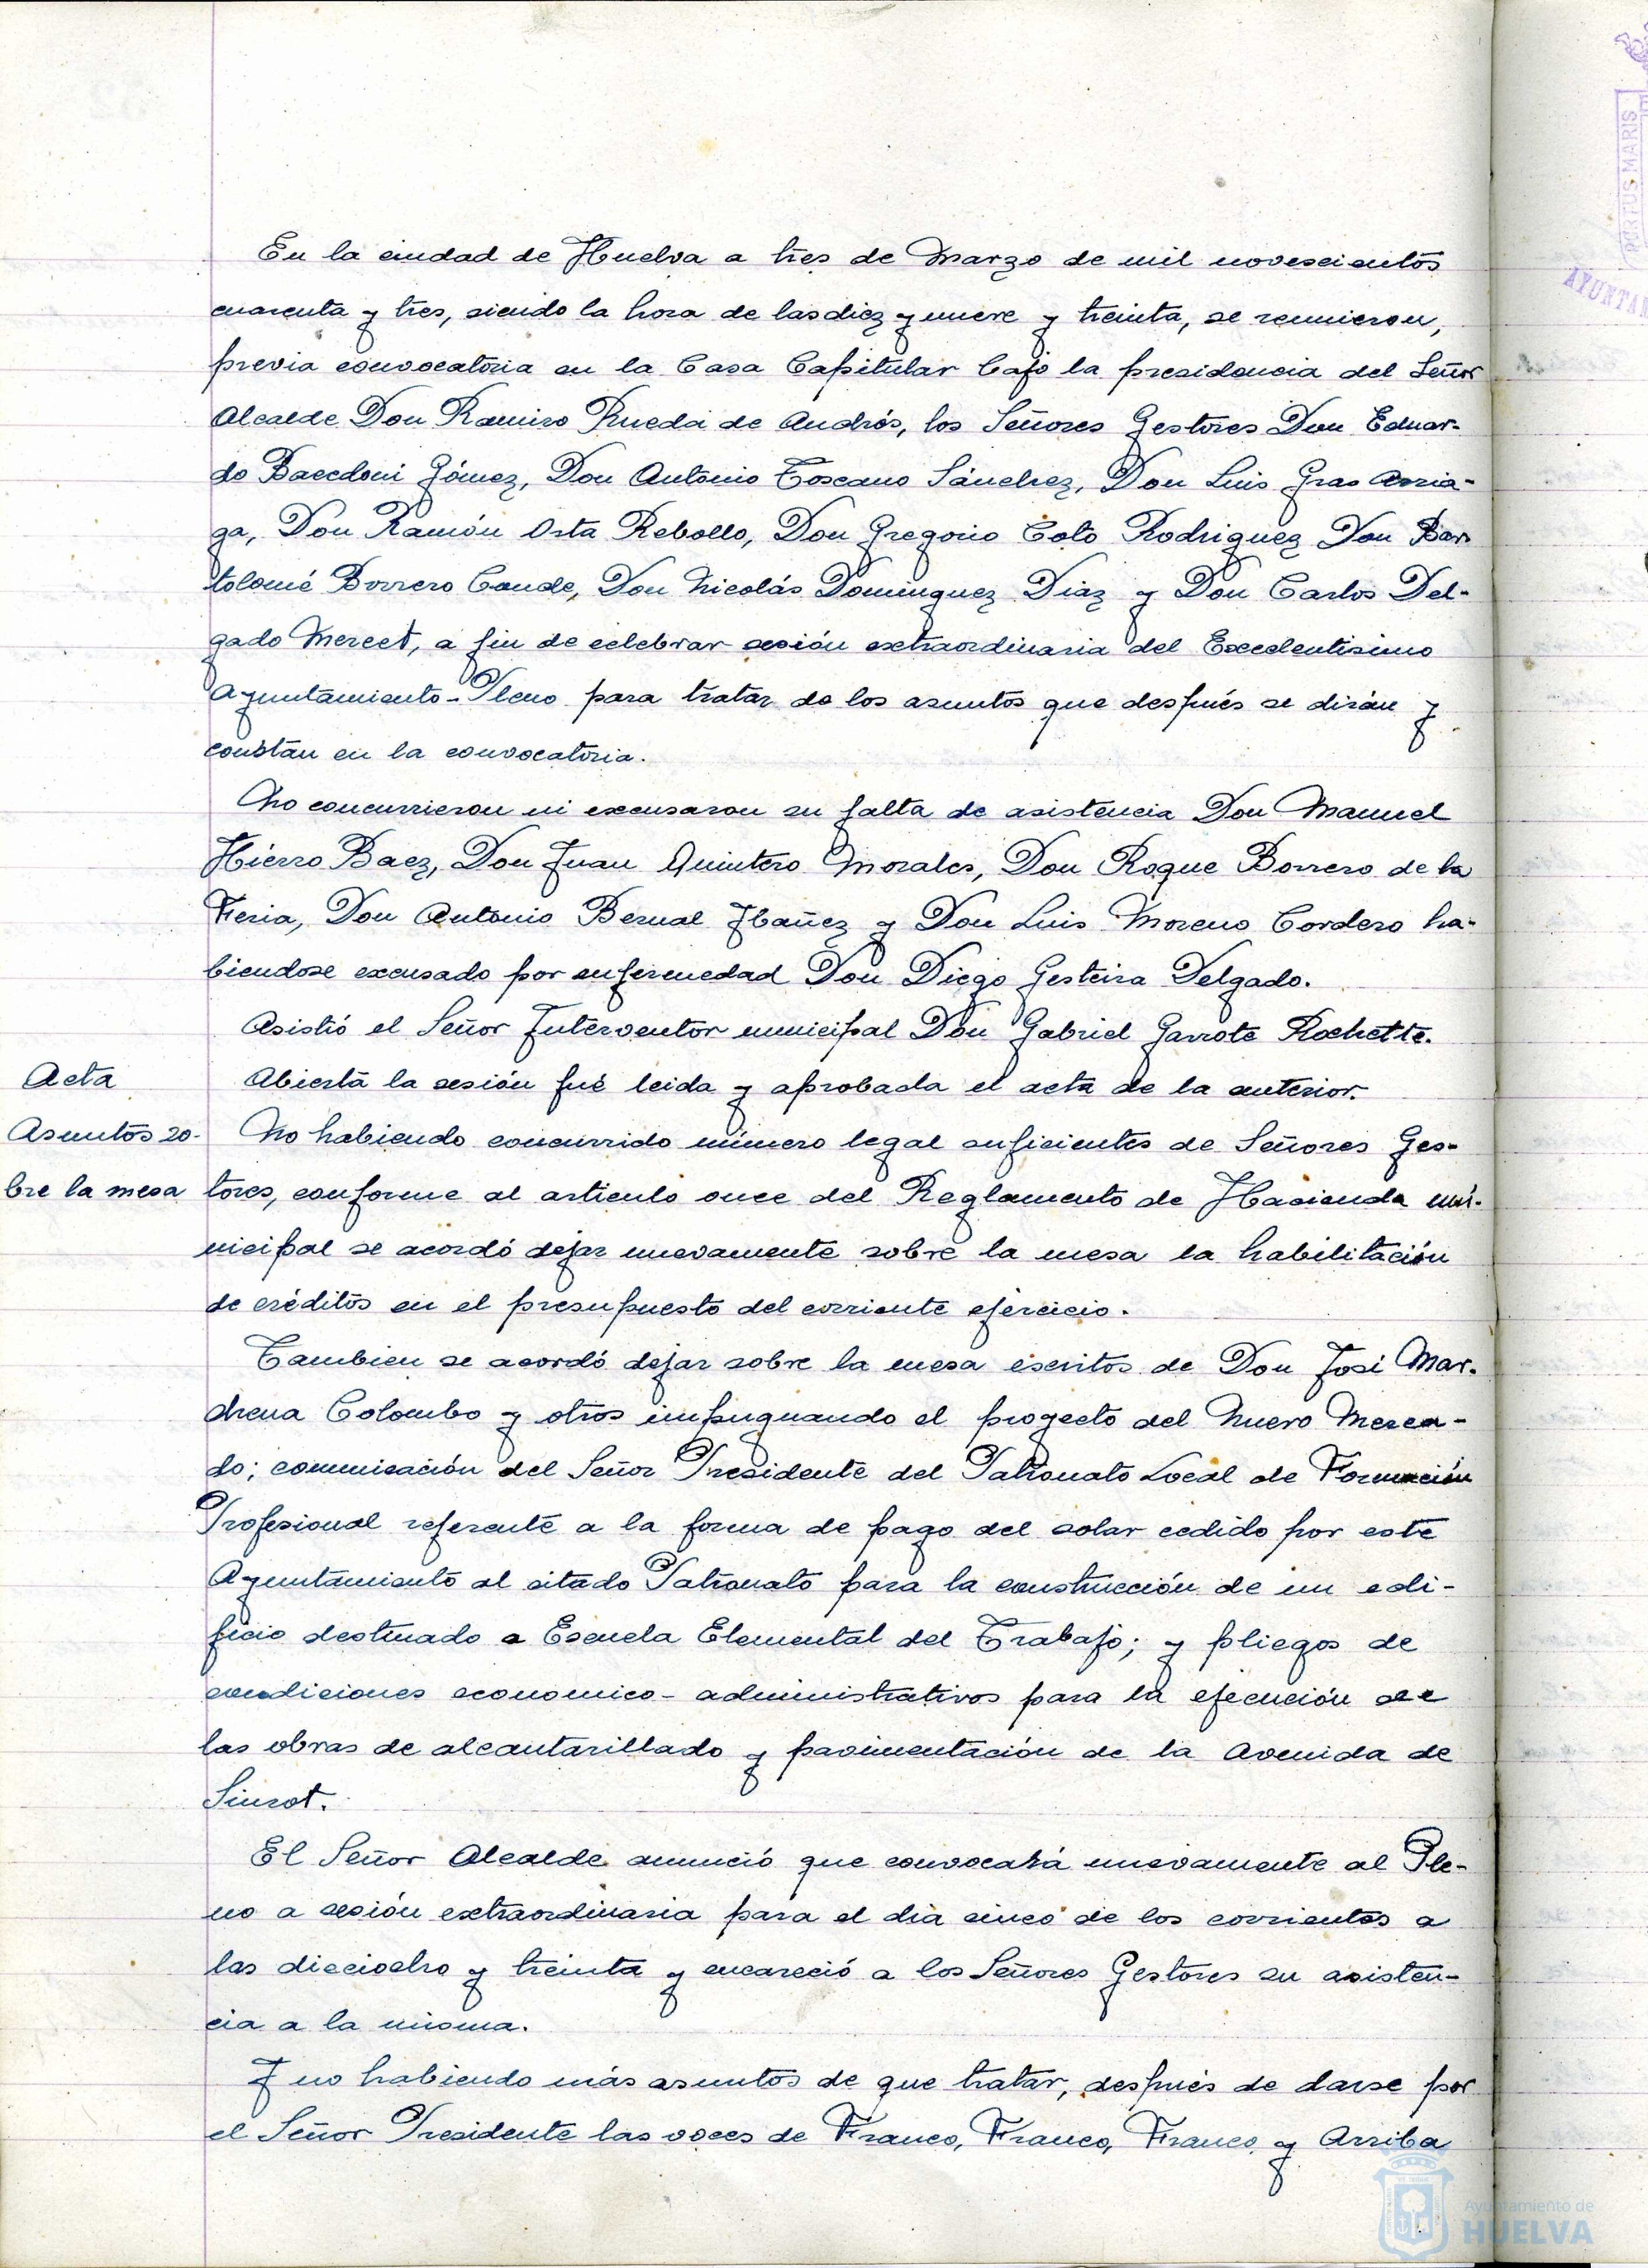 En la ciudad de Huelva a tres de Marzo de mil novescientos
cuarenta y tres, siendo la hora de las diez y nueve y treinta, se reunieron,
previa convocatoria en la Casa Capitular bajo la presidencia del Señor
Alcalde Don Ramiro Rueda de Andrés, los Señores Gestores Don Eduar-
do Baecdoni Gómez, Don Antonio Toscano Sánchez, Don Luis Gras Arria-
ga, Don Ramón Orta Rebollo, Don Gregorio Coto Rodriguez Don Bar-
tolomé Borrero Conde, Don Nicolás Dominguez Diaz y Don Carlos Del-
gado Mercet, a fin de celebrar sesión extraordinaria del Excelentisimo
Ayuntamiento-Pleno para tratar de los asuntos que después se dirán y
constan en la convocatoria.
No concurrieron ni excusaron su falta de asistencia Don Manuel
Hierro Baez, Don Juan Quintero Morales, Don Roque Borrero de la
Feria, Don Antonio Bernal Ibañez y Don Luis Moreno Cordero ha-
biendose excusado por enfermedad Don Diego Gesteira Delgado.
Asistió el Señor Interventor municipal Don Gabriel Garrote Rochette.
Acta
Abierta la sesión fué leida y aprobada el acta de la anterior.
Asuntos so-
bre la mesa
No habiendo concurrido número legal suficientes de Señores Ges-
tores, conforme al articulo once del Reglamento de Hacienda mu-
nicipal se acordó dejar nuevamente sobre la mesa la habilitación
de créditos en el presupuesto del corriente ejercicio.
Tambien se acordó dejar sobre la mesa escritos de Don José Mar-
chena Colombo y otros impugnando el proyecto del Nuevo Merca-
do; comunicación del Señor Presidente del Patronato Local de Formación
Profesional referente a la forma de pago del solar cedido por este
Ayuntamiento al citado Patronato para la construcción de un edi-
ficio destinado a Escuela Elemental del Trabajo; y pliegos de
condiciones economico-administrativos para la ejecución de
las obras de alcantarillado y pavimentación de la Avenida de
Siurot.
El Señor Alcalde anunció que convocará nuevamente al Ple-
no a sesión extraordinaria para el dia cinco de los corrientes a
las dieciocho y treinta y encareció a los Señores Gestores su asisten-
cia a la misma.
Y no habiendo más asuntos de que tratar, después de darse por
el Señor Presidente las voces de Franco, Franco, Franco y Arriba
PORTUS MARIS
AYUNTAM
Ayuntamiento de
HUELVA